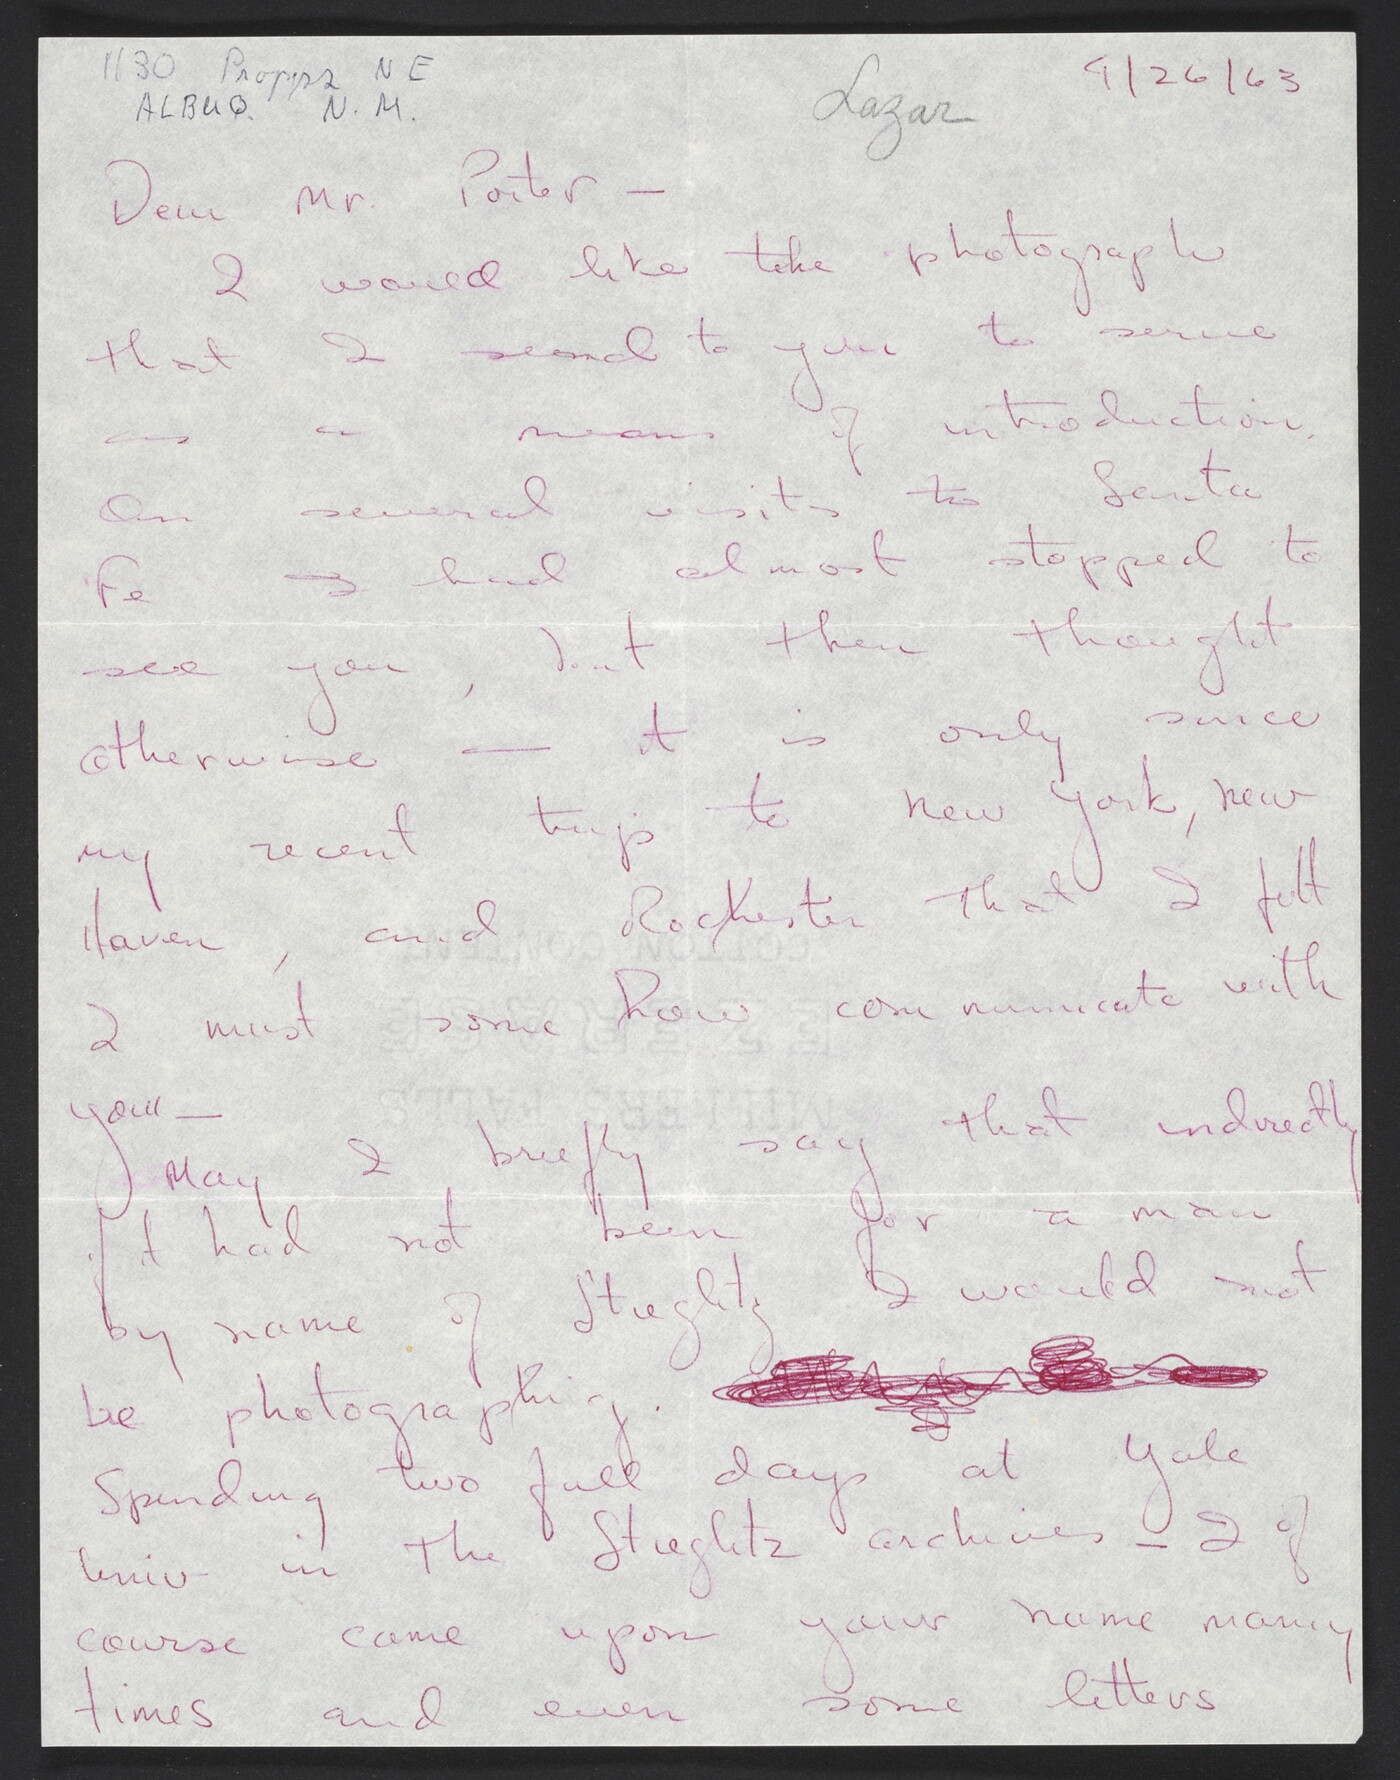 1130 Propps NE
ALBUQ. N.M.
Lazar
9/26/63
Dear Mr. Porter —
I would like the photograph
that I send to you to serve
as a means of introduction.
On several visits to Santa
Fe I had almost stopped to
see you, but then thought
otherwise — it is only since
my recent trip to New York, New
Haven, and Rochester that I felt
I must some how communicate with
you —
May I briefly say that indirectly
if it had not been for a man
by name of Stieglitz I would not
be photographing.
Spending two full days at Yale
Univ in the Stieglitz archives — I of
course came upon your name many
times and even some letters
COTTON CONTENT
EZERASE
MILLERS FALLS